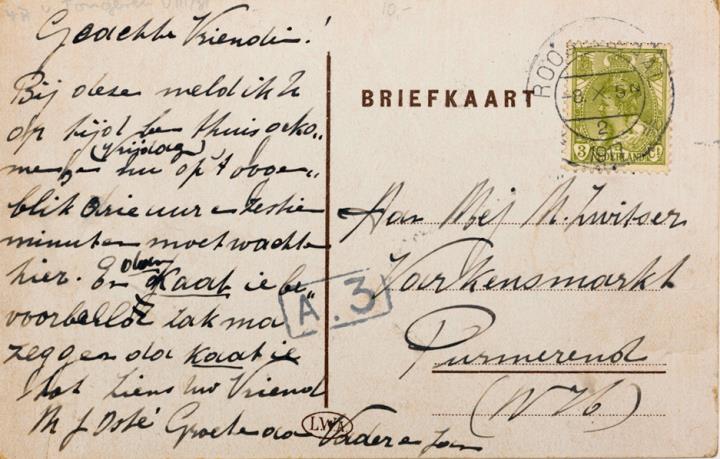 Geachte Vriendin!
Bij deze meld ik U
op tijd ben thuis geko„
men (vrijdag) nu op 't ooge„
blik drie uur en zestien
minuten moet wachten
hier. En dan Kaat ie be„
voorbeeld zak ma
zeggen da kaat ie
tot ziens uw Vriend
M J Osté Groete aan Vader en Jan
BRIEFKAART
ROOSENDAAL
8 X 5N
2
1917
3 NEDERLAND Ct
Aan Mej N. Zwitser
Varkensmarkt
Purmerend
(N H)
A.3
LWA
10,-